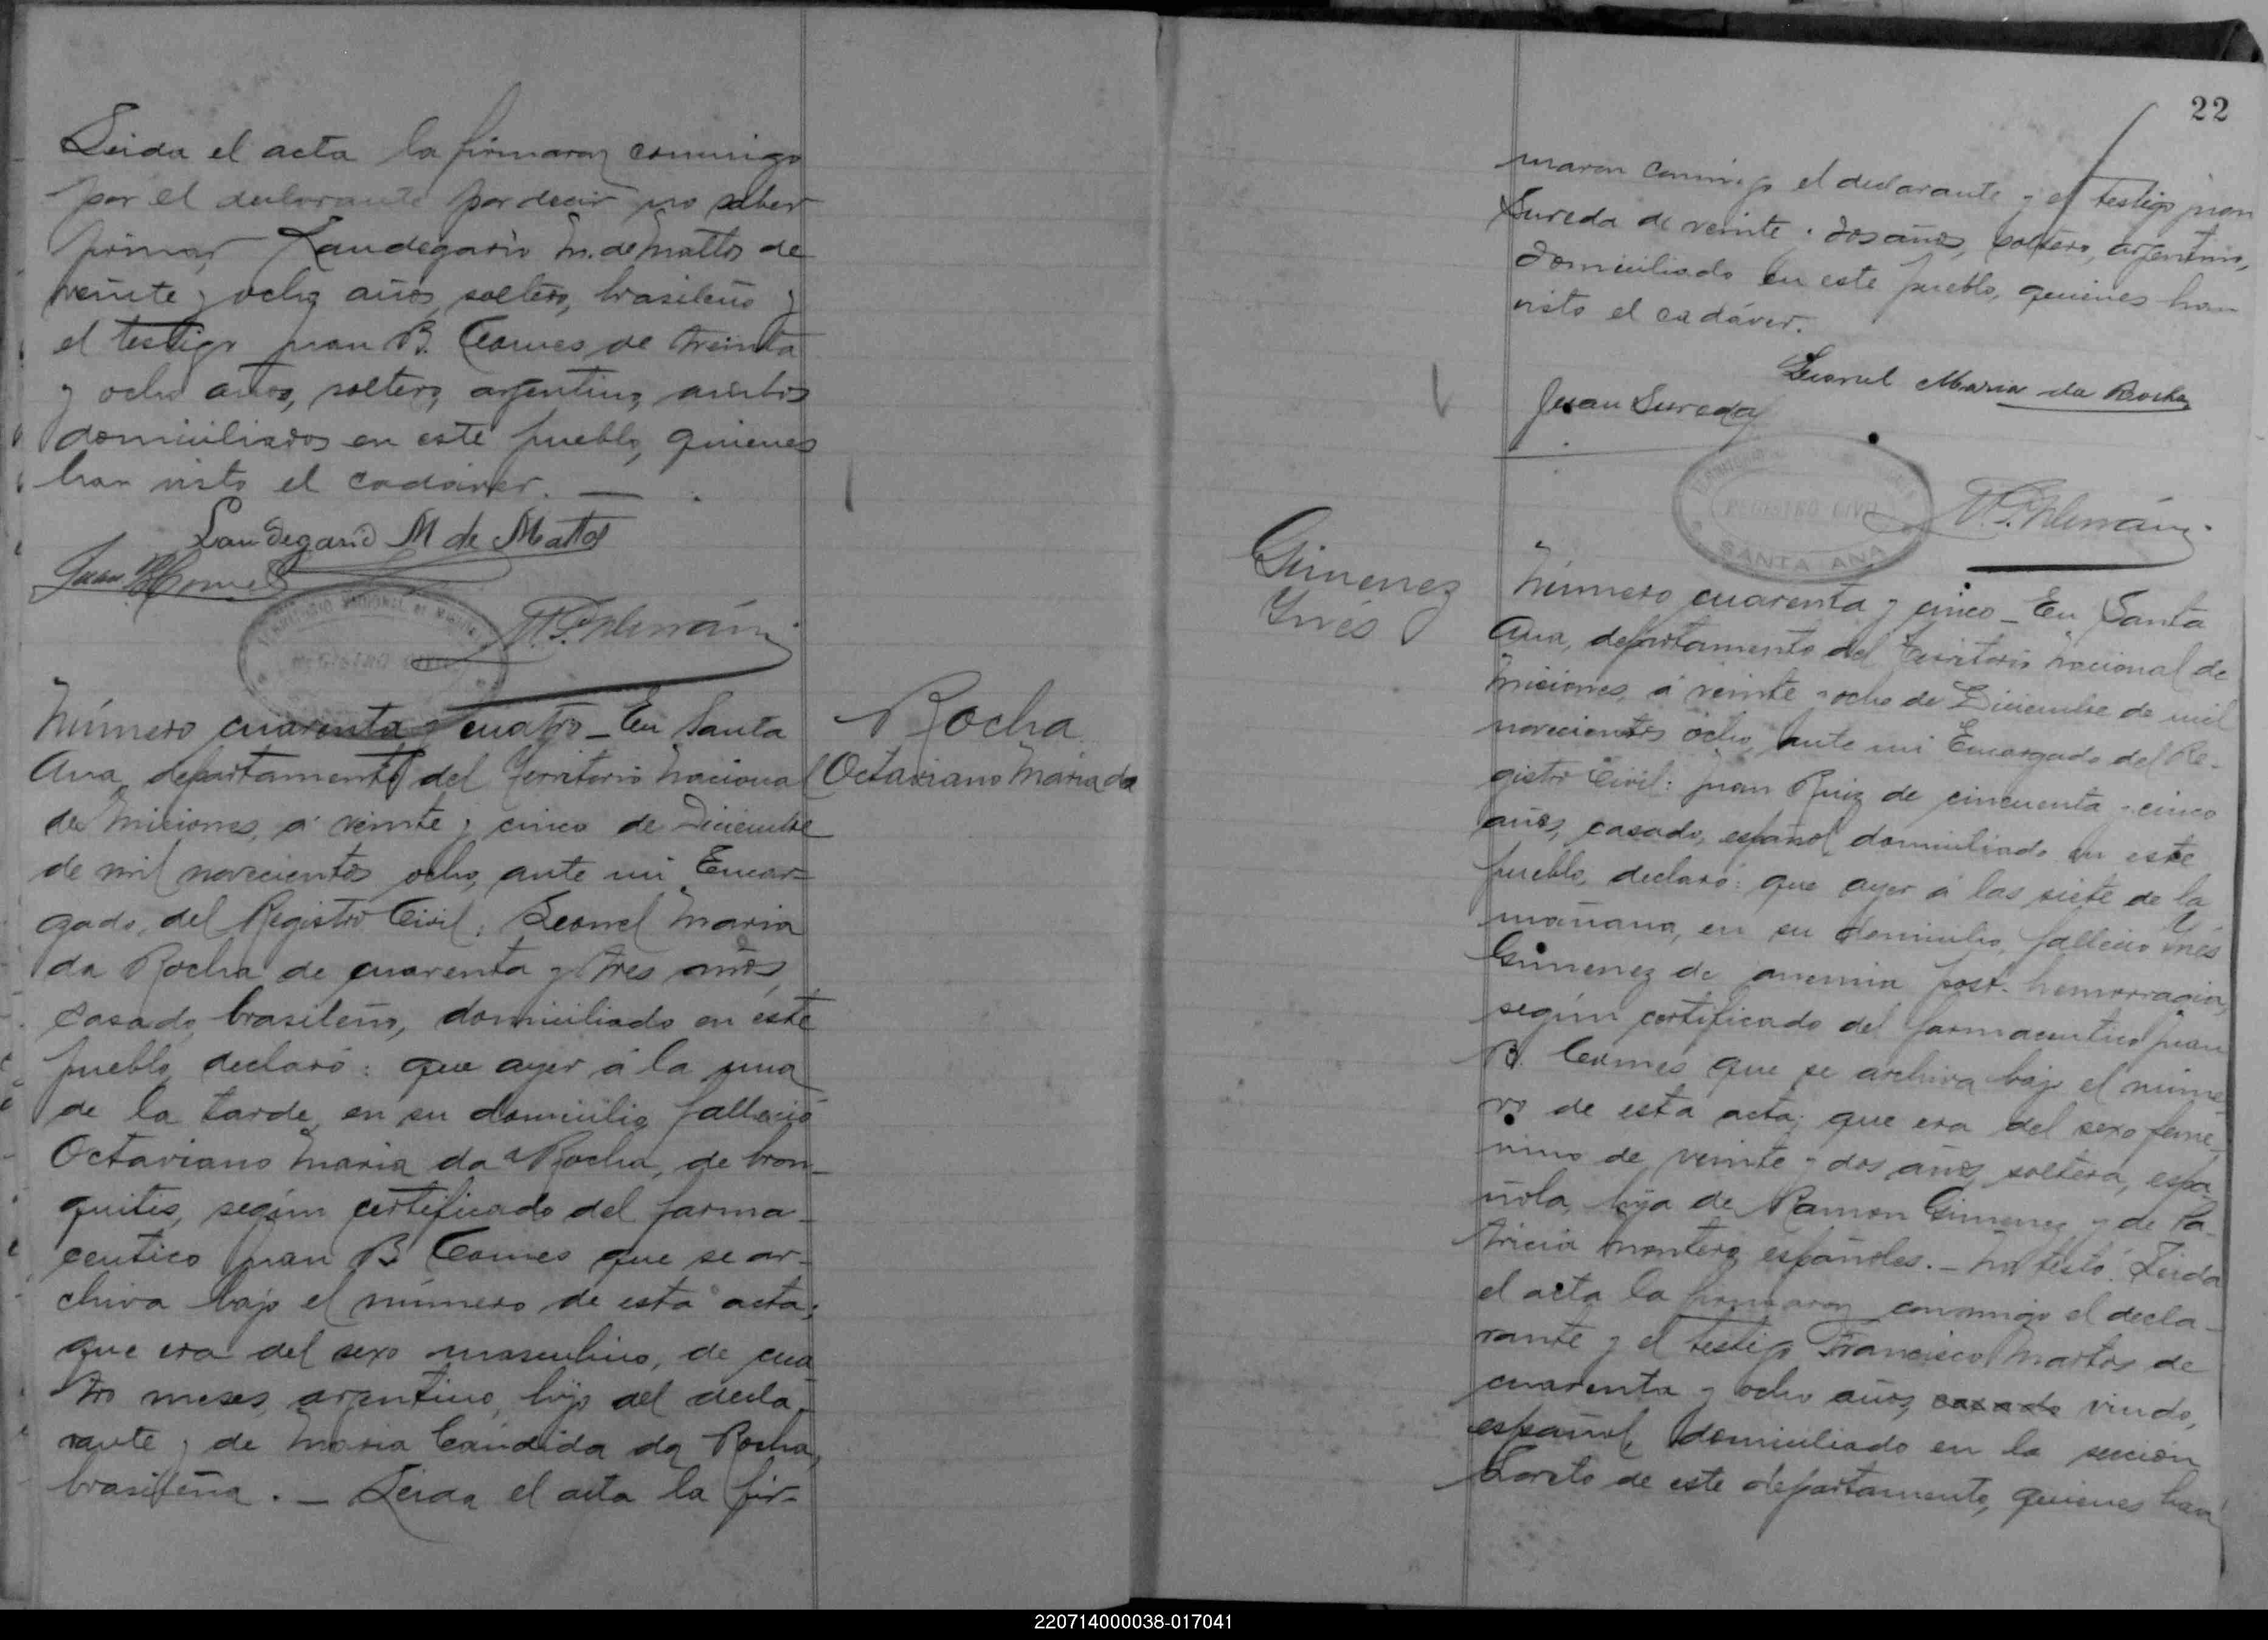 Leida el acta la firmaron conmigo
por el declarante por decir no saber
firmar Laudegario M. de Mattos de
veinte y ocho años, soltero, brasileño y
el testigo Juan B. Comes de treinta
y ocho años, soltero, argentino, ambos
domiciliados en este pueblo, quienes
han visto el cadáver. —
Laudegario M de Mattos
Juan B Comes
TERRITORIO NACIONAL DE MISIONES
REGISTRO CIVIL
Número cuarenta y cuatro _ En Santa
Ana, departamento del Territorio Nacional
de Misiones, á veinte y cinco de Diciembre
de mil novecientos ocho, ante mi Encar=
gado, del Registro Civil: Leonel Maria
da Rocha de cuarenta y tres años,
casado, brasileño, domiciliado en este
pueblo, declaró: que ayer á la una
de la tarde, en su domicilio, falleció
Octaviano Maria da Rocha, de bron_
quitis, según certificado del farma_
ceutico Juan B Comes que se ar_
chiva bajo el número de esta acta;
que era del sexo masculino, de cua
tro meses, argentino, hijo del decla_
rante y de Maria Cándida da Rocha,
brasileña. _ Leida el acta la fir-
Rocha
Octaviano Maria da
22
maron conmigo el declarante y el testigo Juan
Sureda de veinte y dos años, soltero, argentino,
domiciliado en este pueblo, quienes han
visto el cadáver.
Leonel Maria da Rocha
Juan Sureda
REGISTRO CIVIL
SANTA ANA
Gimenez
Ynés
Número cuarenta y cinco _ En Santa
Ana, departamento del Territorio Nacional de
Misiones, á veinte y ocho de Diciembre de mil
novecientos ocho, ante mi Encargado del Re-
gistro Civil: Juan Ruiz de cincuenta y cinco
años, casado, español, domiciliado en este
pueblo, declaró: que ayer á las siete de la
mañana, en su domicilio, falleció Ynés
Gimenez de anemia post-hemorragia,
según certificado del farmaceutico Juan
B. Comes que se archiva bajo el núme_
ro de esta acta; que era del sexo feme_
nino de veinte y dos años, soltera, espa_
ñola, hija de Ramon Gimenez y de Pa_
tricia Montero, españoles. _ No testó. Leida
el acta la firmaron conmigo el decla_
rante y el testigo Francisco Martos de
cuarenta y ocho años, casado viudo,
español, domiciliado en la sección
Loreto de este departamento, quienes han
220714000038-017041